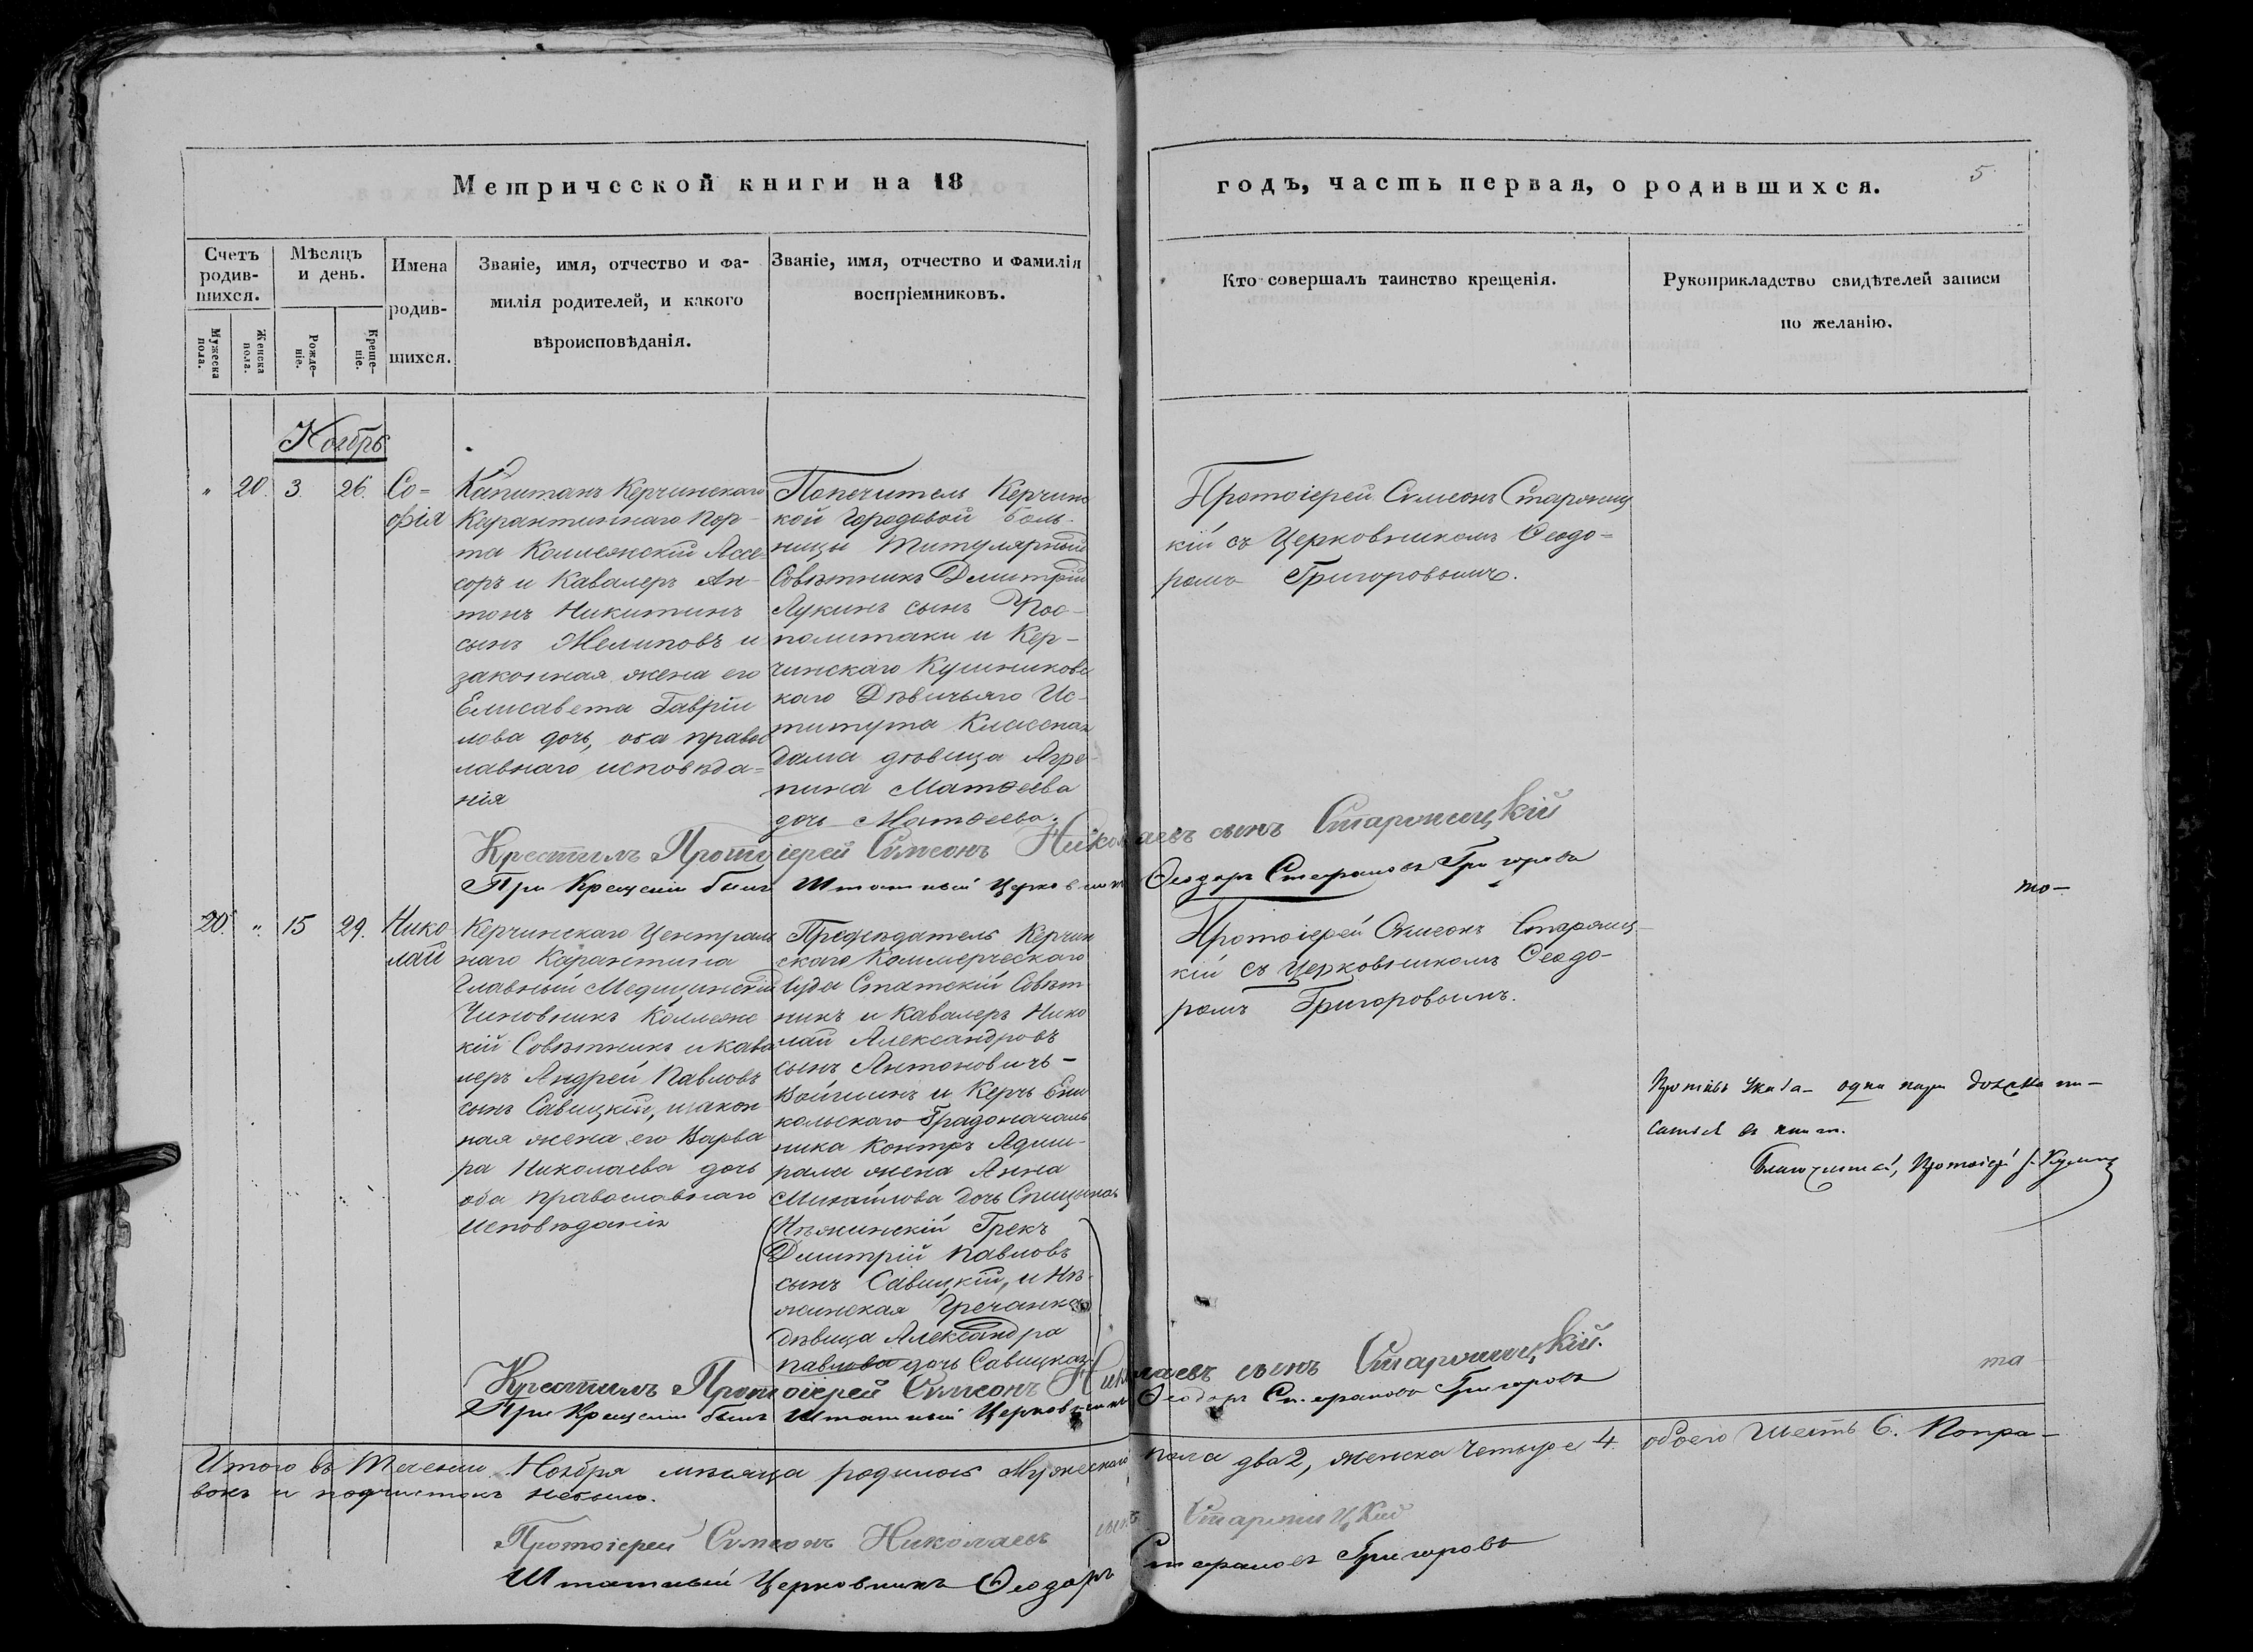 Метрической книги на 18
годъ, часть первая, о родившихся.
5
Счетъ родив-шихся.
Мужеска пола.
Женска пола.
Мѣсяцъ и день.
Рожде-ніе.
Креще-ніе.
Имена
родив-
шихся.
Званіе, имя, отчество и фа-
милія родителей, и какого
вѣроисповѣданія.
Званіе, имя, отчество и фамилія
воспріемниковъ.
Кто совершалъ таинство крещенія.
Рукоприкладство свидѣтелей записи
по желанію.
Ноябрь
" 20. 3. 26.
Со=
фія
Капитанъ Керчинскаго
Карантиннаго Пор-
та Коллежскій Ассе-
соръ и Кавалеръ Ан-
тонъ Никитинъ
сынъ Мелиповъ и
законная жена его
Елисавета Гавріи
лова дочь, оба правос
лавнаго исповѣда=
нія
Попечитель Керчинс
кой Городовой боль-
ницы Титулярный
Совѣтникъ Дмитрій
Лукинъ сынъ
политаки и Кер-
чинскаго Кушниковс
каго Дѣвичьяго Ис-
титута Классная
Дама дѣвица Агре-
пина Матѳеева
дочь Матѳеева.
Протоіерей Сѵмеонъ Старониц
кій съ Церковникомъ Ѳеодо=
ромъ Григоровымъ.
Крестилъ Протоіерей Сѵмеонъ Николаевъ сынъ Староницкій
При Крещеніи былъ Штатный Церковникъ Ѳеодоръ Стефановъ Григоровъ
то-
20. " 15 29.
Нико
лай
Керчинскаго Централь
наго Карантина
Главный Медицинскій
Чиновникъ Коллежс
кій Совѣтникъ и Кава
леръ Андрей Павловъ
сынъ Савицкій, и закон
ная жена его Варва
ра Николаева дочь
оба православнаго
Исповѣданія
Предсѣдатель Керчин
скаго Коммерческаго
Суда Статскій Совѣт
никъ и Кавалеръ Нико
лай Александровъ
сынъ Антоновичъ-
Войнинъ и Керчь Ени
кольскаго Градоначаль
ника Контръ Адми-
рала жена Анна
Михайлова дочь Спицына
(Нѣжинскій Грекъ
Димитрій Павловъ
сынъ Савицкій, и Нѣ-
жинская Гречанка
Дѣвица Александра
Павлова дочь Савицкая)
Протоіерей Сѵмеонъ Старониц-
кій съ Церковникомъ Ѳеодо-
ромъ Григоровымъ.
Противъ Указа- одна пара должна пи-
саться въ книги.
Благочинный, Протоіерей
Крестилъ Протоіерей Сѵмеонъ Николаевъ сынъ Староницкій.
та
При Крещеніи былъ Штатный Церковникъ Ѳеодоръ Стефановъ Григоровъ
Итого въ Теченіи Ноября мѣсяца родилось Мужескаго пола два 2, женска Четыре 4. обоего шесть 6. Попра-
вокъ и подчистокъ небыло.
Протоіерей Сѵмеонъ Николаевъ сынъ Староницкій
Штатный Церковникъ Ѳеодоръ Стефановъ Григоровъ